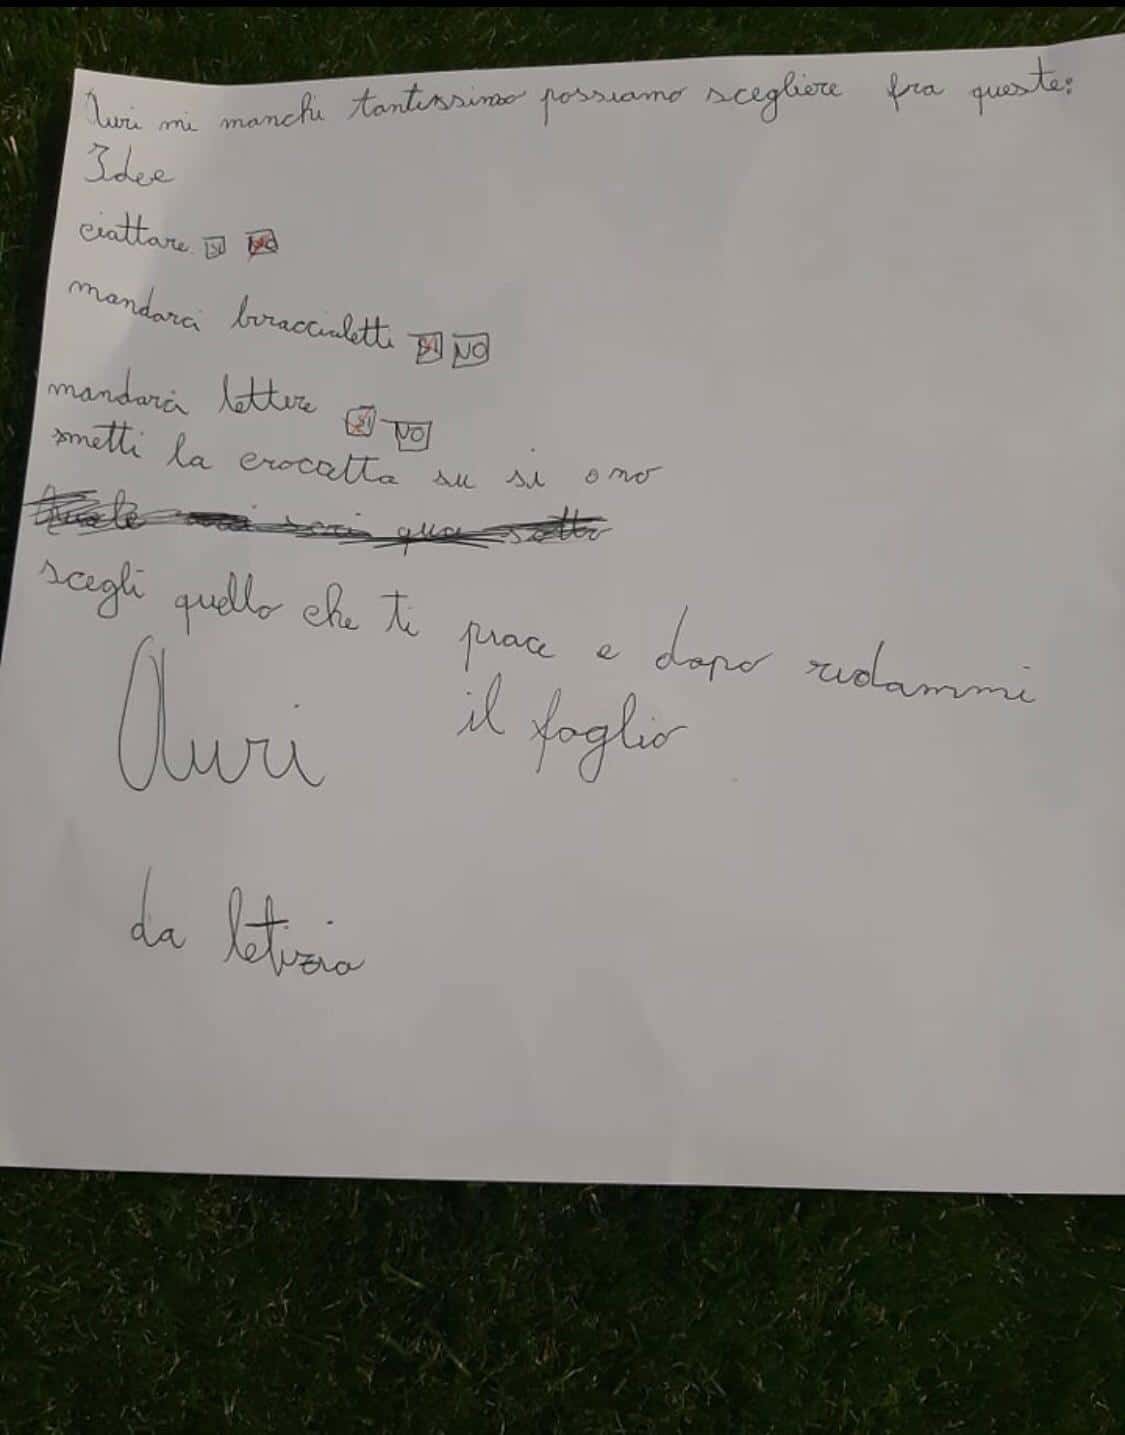 Auri mi manchi tantissimo possiamo scegliere fra queste:
Idee
ciattare SI NO
mandarci braccialetti SI NO
mandarci lettere SI NO
smetti la crocetta su si o no
qua sotto
scegli quello che ti piace e dopo ridammi
il foglio
Auri
da letizia